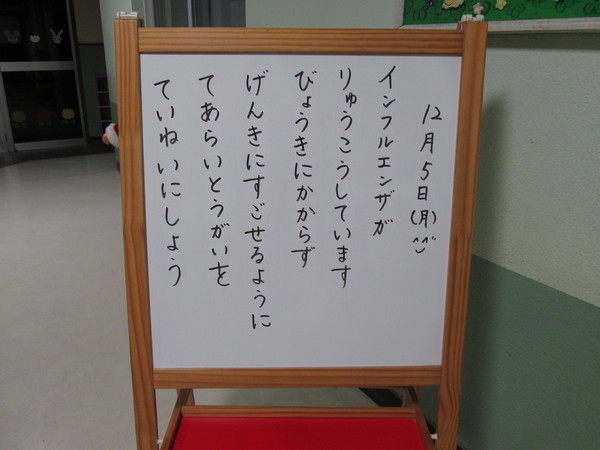 12月5日(月)^^
インフルエンザが
りゅうこうしています
びょうきにかからず
げんきにすごせるように
てあらいとうがいを
ていねいにしよう